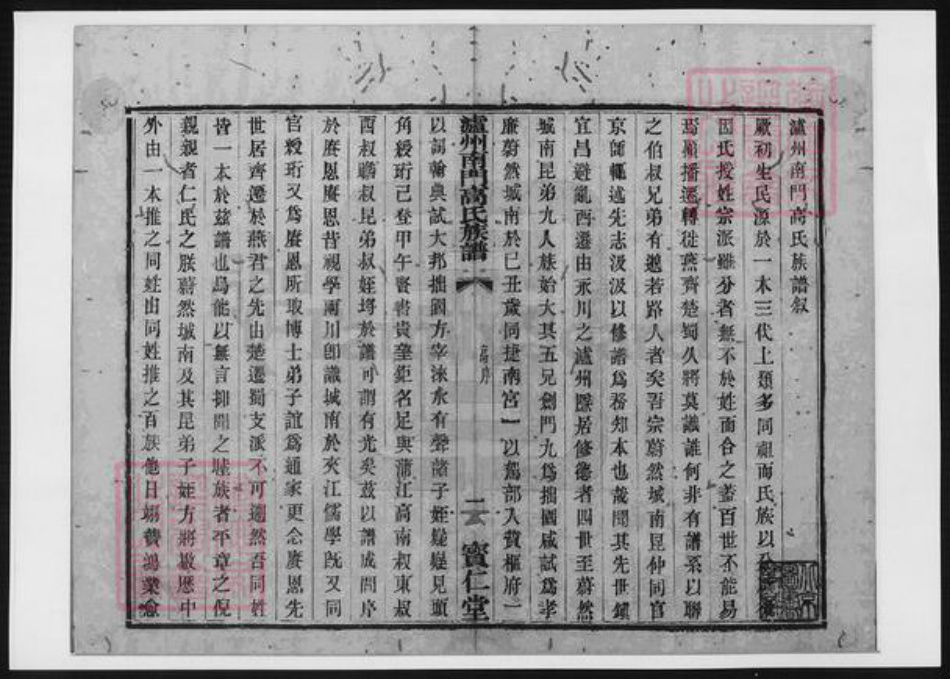 瀘州南門高氏族譜叙
厥初生民源於一本三代上類多同祖而氏族以
因氏授姓宗派雖分者無不於姓面合之蓋百世不能易
焉顧播遷轉徙燕齊楚蜀久將莫識誰何非有譜系以聯
之伯叔兄弟有邈若路人者矣吾宗蔚然城南昆仲同官
京師輒述先志汲汲以修譜爲務知本也哉聞其先世鎮
宜昌避亂西遷由永川之瀘州隱居修德者四世至蔚然
城南昆弟九人族始大其五兄劍門九爲拙園咸試爲孝
廉蔚然城南於己丑歲同捷南宮一以駕部入贊樞府一
以詞翰典試大邦拙園方宰淶水有聲諸子姪嶷嶷見頭
角綬珩己登甲午賢書貴肇鉅名足與蒲江高南叔東叔
西叔瞻叔昆弟叔姪埒於譜可謂有光矣茲以譜成問序
於賡恩賡恩昔視學兩川卽識城南於夾江儒學旣又同
官綬珩又爲賡恩所取博士弟子誼爲通家更念賡恩先
世居齊遷於燕君之先由楚遷蜀支派不可遡然吾同姓
皆一本於茲譜也烏能以無言抑聞之睦族者平章之倪
親親者仁民之朕蔚然城南及其昆弟子姪方將敭歷中
外由一本推之同姓由同姓推之百族他日翊贊鴻業愈
瀘州南門高氏族譜
高序
一
寶仁堂